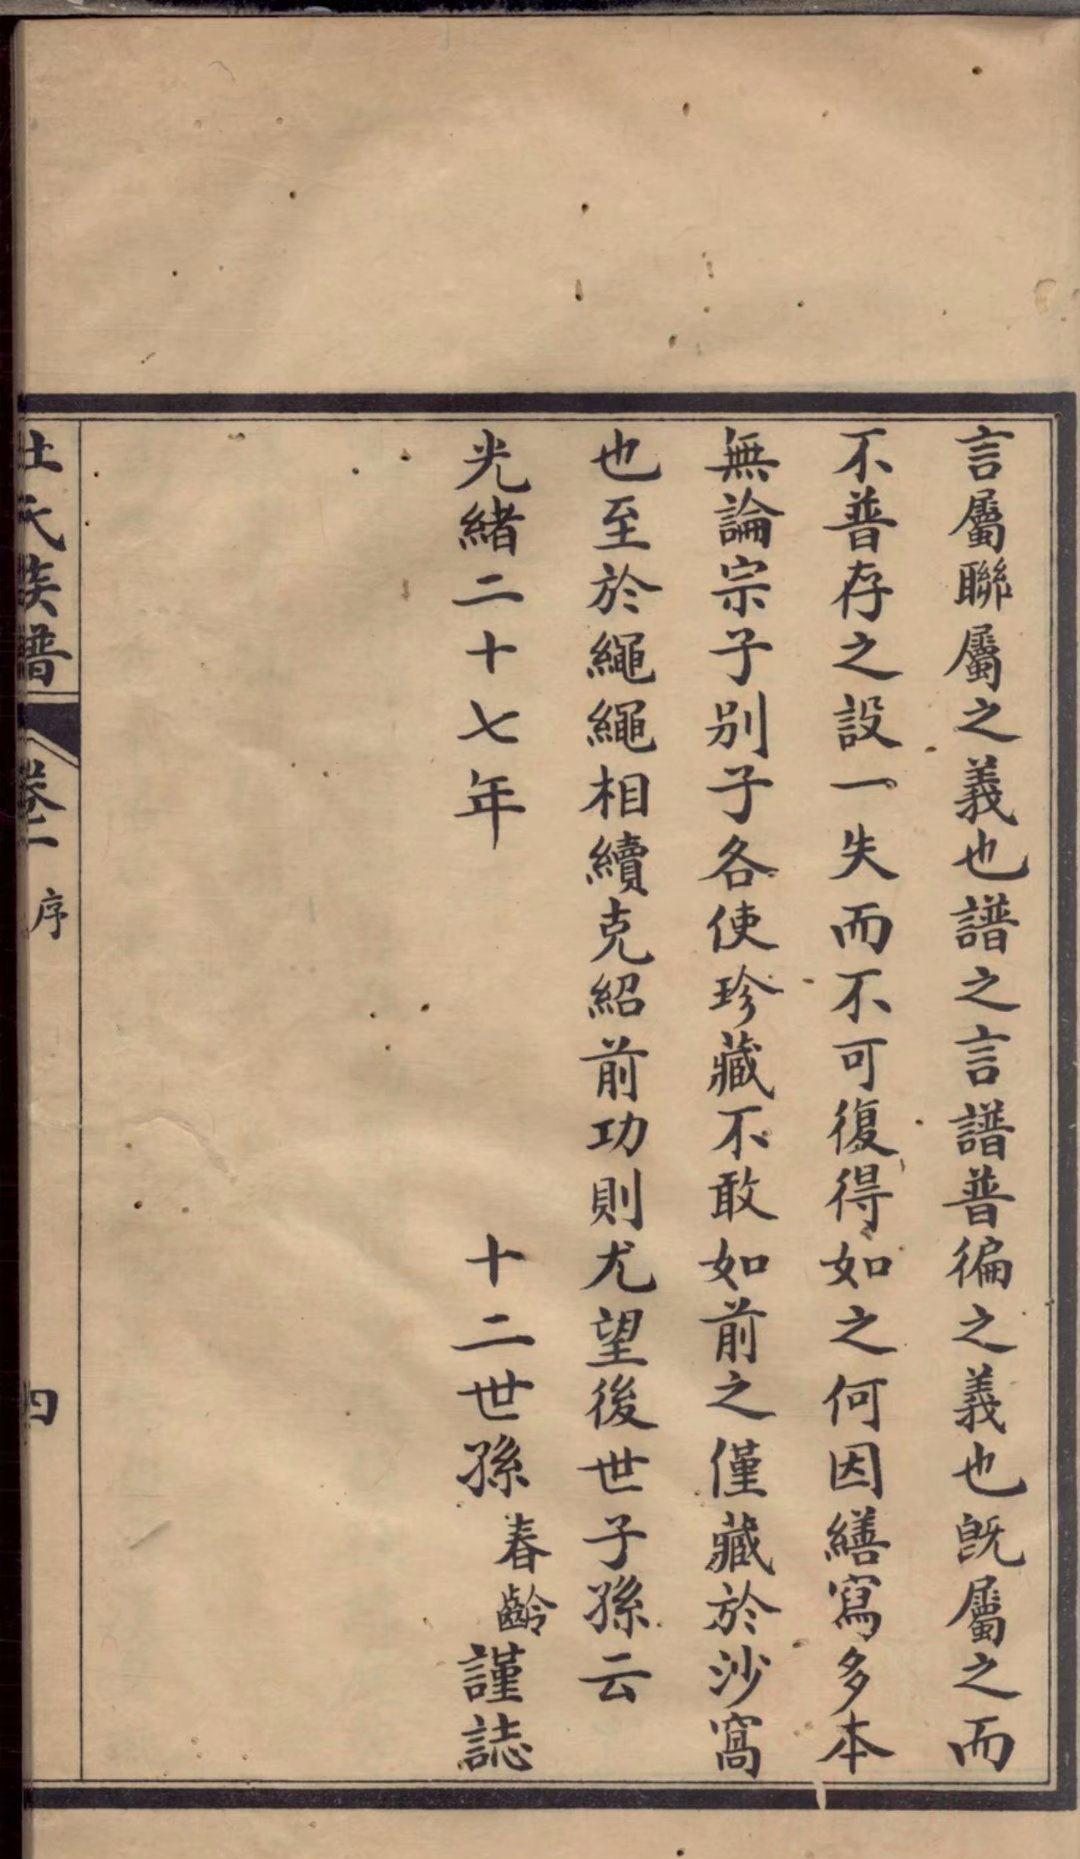 言屬聯屬之義也譜之言譜普徧之義也既屬之而
不普存之設一失而不可復得如之何因繕寫多本
無論宗子别子各使珍藏不敢如前之僅藏於沙窩
也至於繩繩相續克紹前功則尤望後世子孫云
光緒二十七年 十二世孫春齡謹誌
杜氏族譜 卷二 序 四